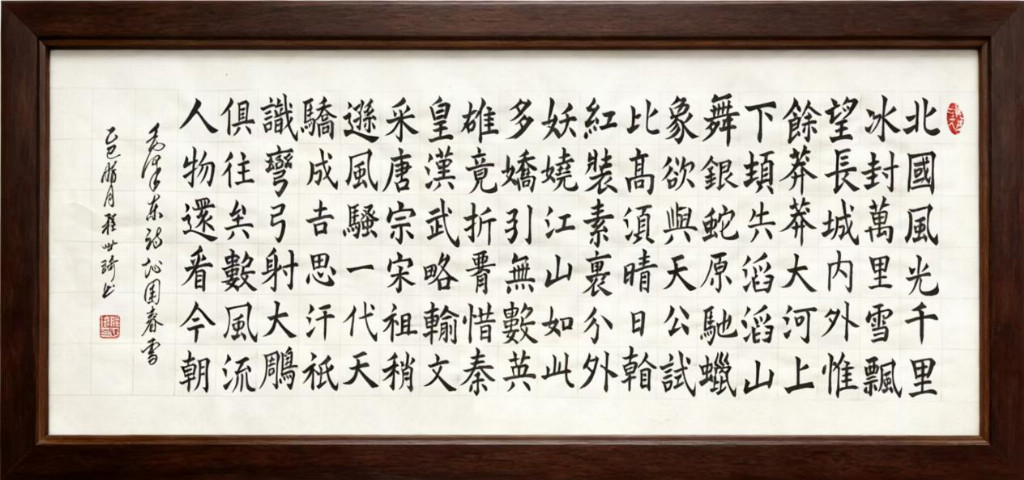 北國風光千里
冰封萬里雪飄
望長城内外惟
餘莽莽大河上
下頓失滔滔山
舞銀蛇原馳蠟
象欲與天公試
比髙須晴日翰
紅裝素裹分外
妖嬈江山如此
多嬌引無數英
雄竟折胥惜秦
皇漢武略輸文
采唐宗宋祖稍
遜風騷一代天
驕成吉思汗祇
識彎弓射大鵰
俱往矣數風流
人物還看今朝
毛澤东詩沁園春雪
乙巳腊月程世琦书